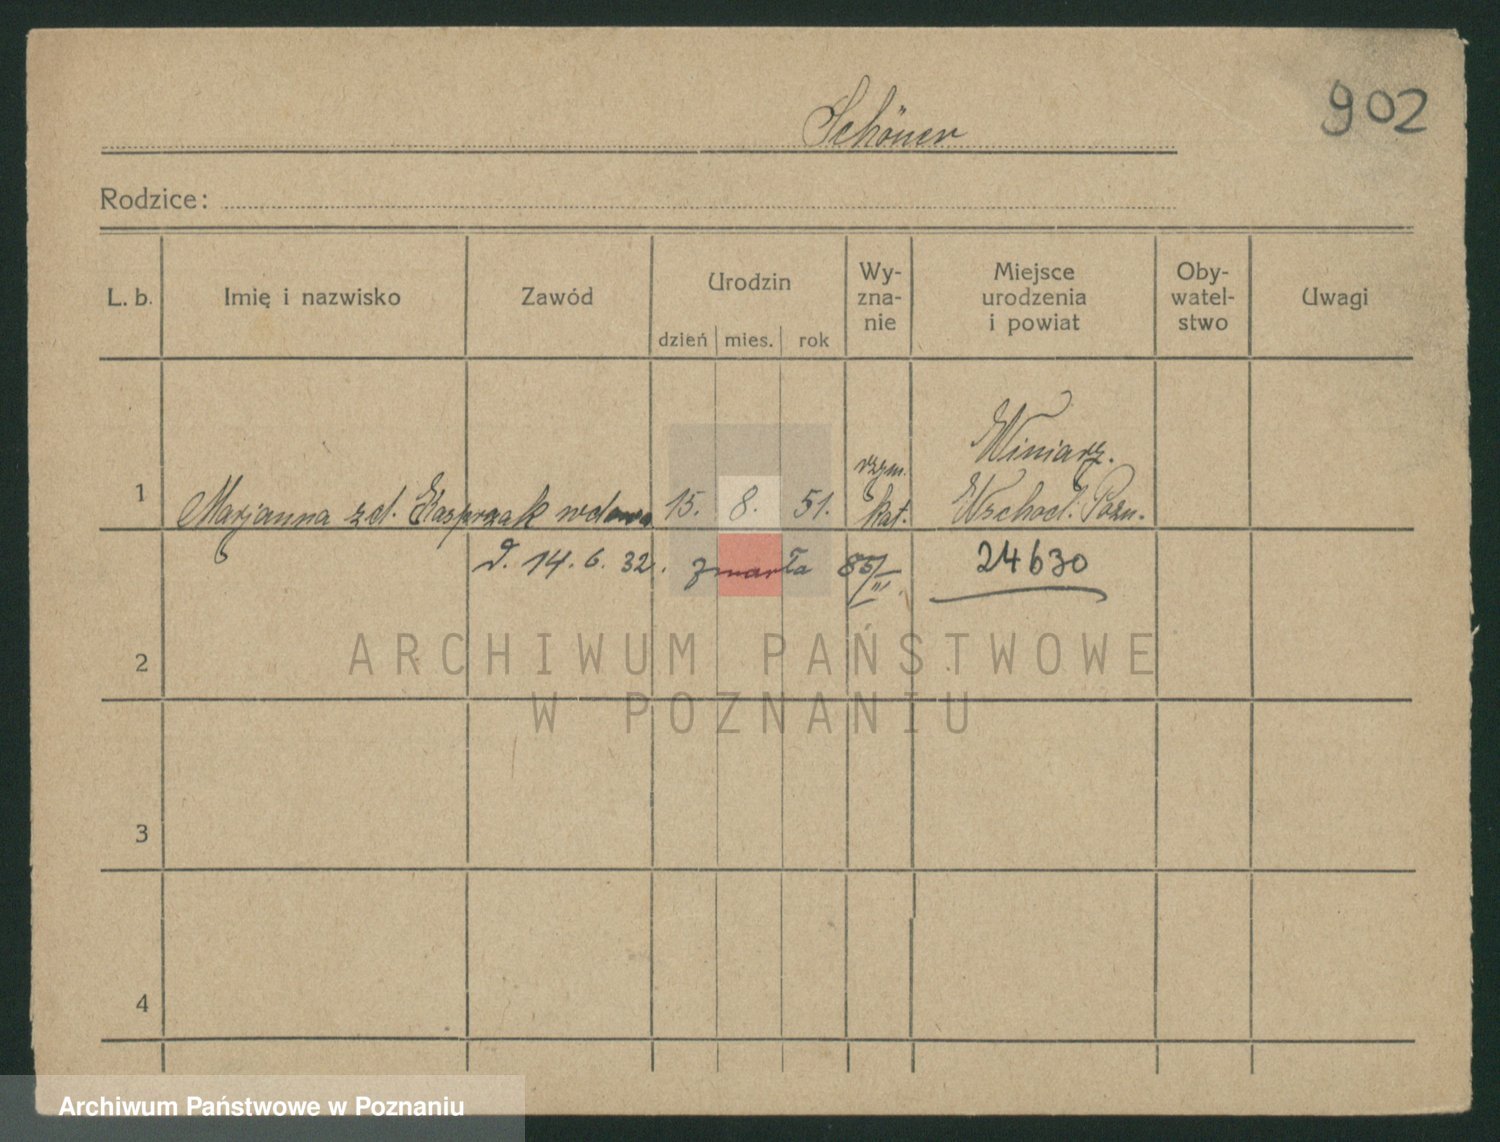 902
Schöner
Rodzice:
L. b.
Imię i nazwisko
Zawód
Urodzin
dzień mies. rok
Wy-
zna-
nie
Miejsce
urodzenia
i powiat
Oby-
watel-
stwo
Uwagi
Winiarz.
1 Marjanna zd. Kasprzak wdowa 15. 8. 51. rzym. kat. Wschod. Pozn.
14.6.32. zmarła
24630
2
ARCHIWUM PAŃSTWOWE
W POZNANIU
3
4
Archiwum Państwowe w Poznaniu